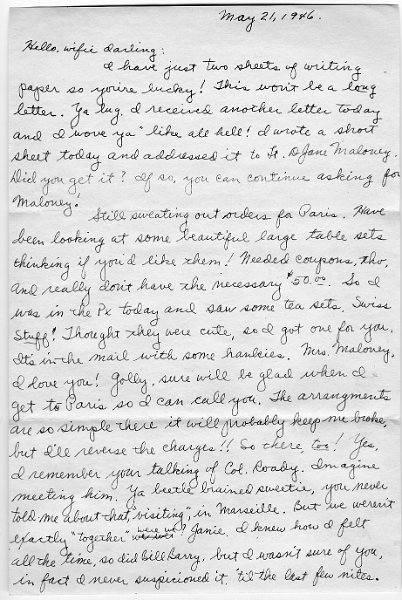 May 21, 1946.
Hello, wifie darling:
I have just two sheets of writing
paper so you're lucky! This won't be a long
letter. Ya lug, I received another letter today
and I wove ya' like all hell! I wrote a short
sheet today and addressed it to Lt. D Jane Maloney.
Did you get it? If so, you can continue asking for
Maloney.
Still sweating out orders fa Paris. Have
been looking at some beautiful large table sets
thinking if you'd like them! Needed coupons, tho,
and really don't have the necessary $50.00. So I
was in the Px today and saw some tea sets, Swiss
Stuff! Thought they were cute, so I got one for you.
It's in the mail with some hankies. Mrs. Maloney,
I love you! Golly, sure will be glad when I
get to Paris so I can call you. The arrangments
are so simple there it will probably keep me broke,
but I'll reverse the charges!! So there, too! Yes,
I remember your talking of Col. Roady. Imagine
meeting him. Ya beetle brained sweetie, you never
told me about that "visiting", in Marseille. But we weren't
exactly "together" were we? Janie, I knew how I felt
all the time, so did Bill Barry, but I wasn't sure of you,
in fact I never suspicioned it, 'til the last few nites.